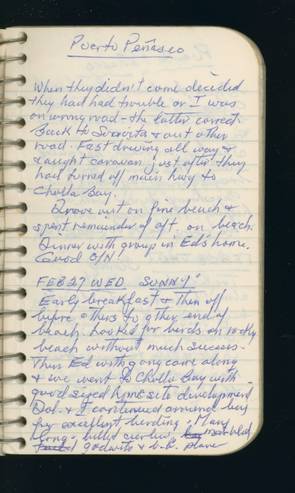 Puerto Peñasco
When they didn't come decided
they had had trouble or I was
on wrong road - the latter correct.
Back to Sonoita & out other
road. Fast driving all way &
caught caravan just after they
had turned off main hwy to
Cholla Bay.
Drove out on fine beach &
spent remainder of aft. on beach.
Dinner with group in Ed's home.
Good O/N
FEB 27 WED. SUNNY
Early breakfast & then off
before others to other end of
beach. Looked for birds on rocky
beach without much success.
Then Ed with gang came along
& we went to Cholla Bay with
good sized home site development
Dot. & I continued around bay
for excellent birding. Many
long-billed curlew, marbled
godwits & b.b. plover